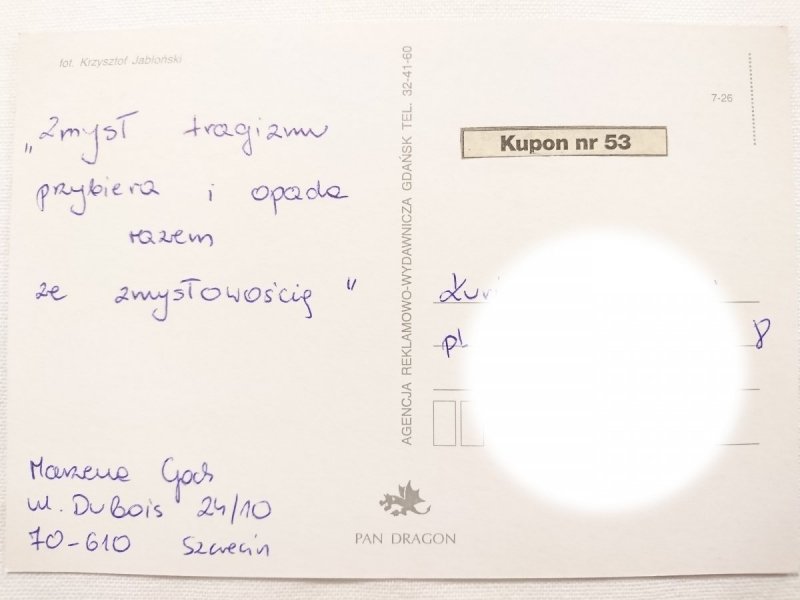 fot. Krzysztof Jabłoński
„Zmysł tragizmu
przybiera i opada
razem
ze zmysłowością"
Marzena
ul. Dubois 24/10
70-610 Szczecin
AGENCJA REKLAMOWO-WYDAWNICZA GDAŃSK TEL. 32-41-60
PAN DRAGON
7-26
Kupon nr 53
pl
8